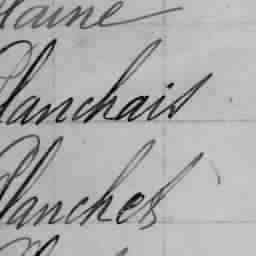 laine
Planchais
Planchet